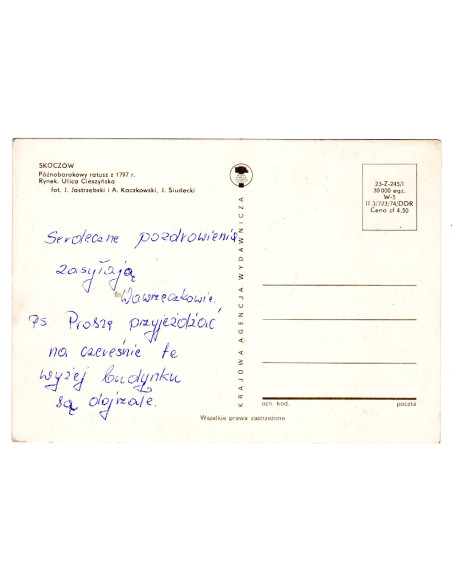 SKOCZÓW
Późnobarokowy ratusz z 1797 r.
Rynek. Ulica Cieszyńska
fot. J. Jastrzębski i A. Kaczkowski, J. Siudecki
KRAJOWA AGENCJA WYDAWNICZA
23-Z-245/I
30 000 egz.
W-3
II.3/723/74/DDR
Cena zł 4,50
Serdeczne pozdrowienia
zasyłają
Wawrzeczkowie.
PS Proszę przyjeżdżać
na czereśnie te
wyżej budynku
są dojrzałe.
ozn. kod. poczta
Wszelkie prawa zastrzeżone